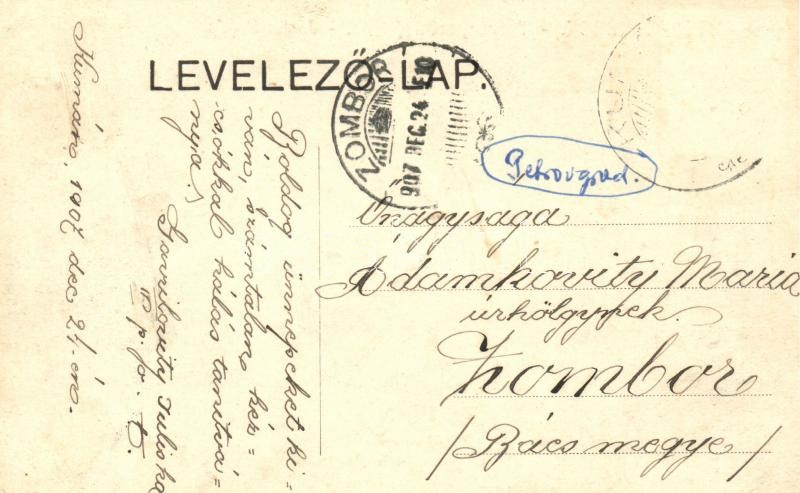 LEVELEZŐ-LAP.
ZOMBOR
907 DEC. 24
KUM
Petrovgrad.
Őnagysága
Adamkovity Maria
úrhölgynek.
Zombor
/Bács megye/
Boldog ünnepeket ki-
ván, számtalan kéz-
csókkal hálás tanitvá-
nya:
Gavrilovity Juliska
IV p. o. t.
Kumán, 1907 dec 24-én.